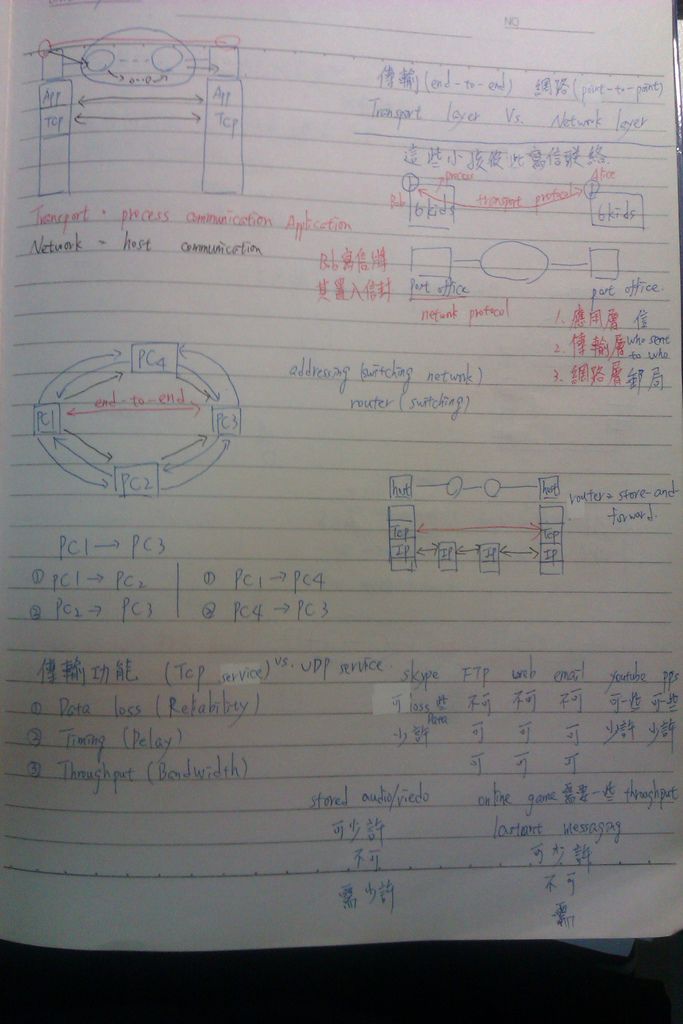 NO
App App
Tcp Tcp
傳輸(end-to-end) 網路(point-to-point)
Transport layer Vs. Network layer
這些小孩彼此寫信聯絡
process Alice
Bob transport protocol
6 kids 6 kids
Transport = process communication Application
Network = host communication
Bob寫信將
其置入信封
port office port office.
network protocol
1. 應用層 信
2. 傳輸層 who sent to who
3. 網路層 郵局
PC4
end-to-end
PC1 PC3
PC2
addressing (switching network)
router (switching)
host host
router = store-and-forward.
Tcp Tcp
IP IP IP IP
PC1 → PC3
① PC1 → PC2 ① PC1 → PC4
② PC2 → PC3 ② PC4 → PC3
傳輸功能 (Tcp service) vs. UDP service.
skype FTP web email youtube pps
① Data loss (Reliability) 可 loss 些 Data 不可 不可 不可 可一些 可一些
② Timing (Delay) 少許 可 可 可 少許 少許
③ Throughput (Bandwidth) 可 可 可
stored audio/viedo online game 需要一些 throughput
可少許 Instant messaging
不可 可少許
需少許 不可
需